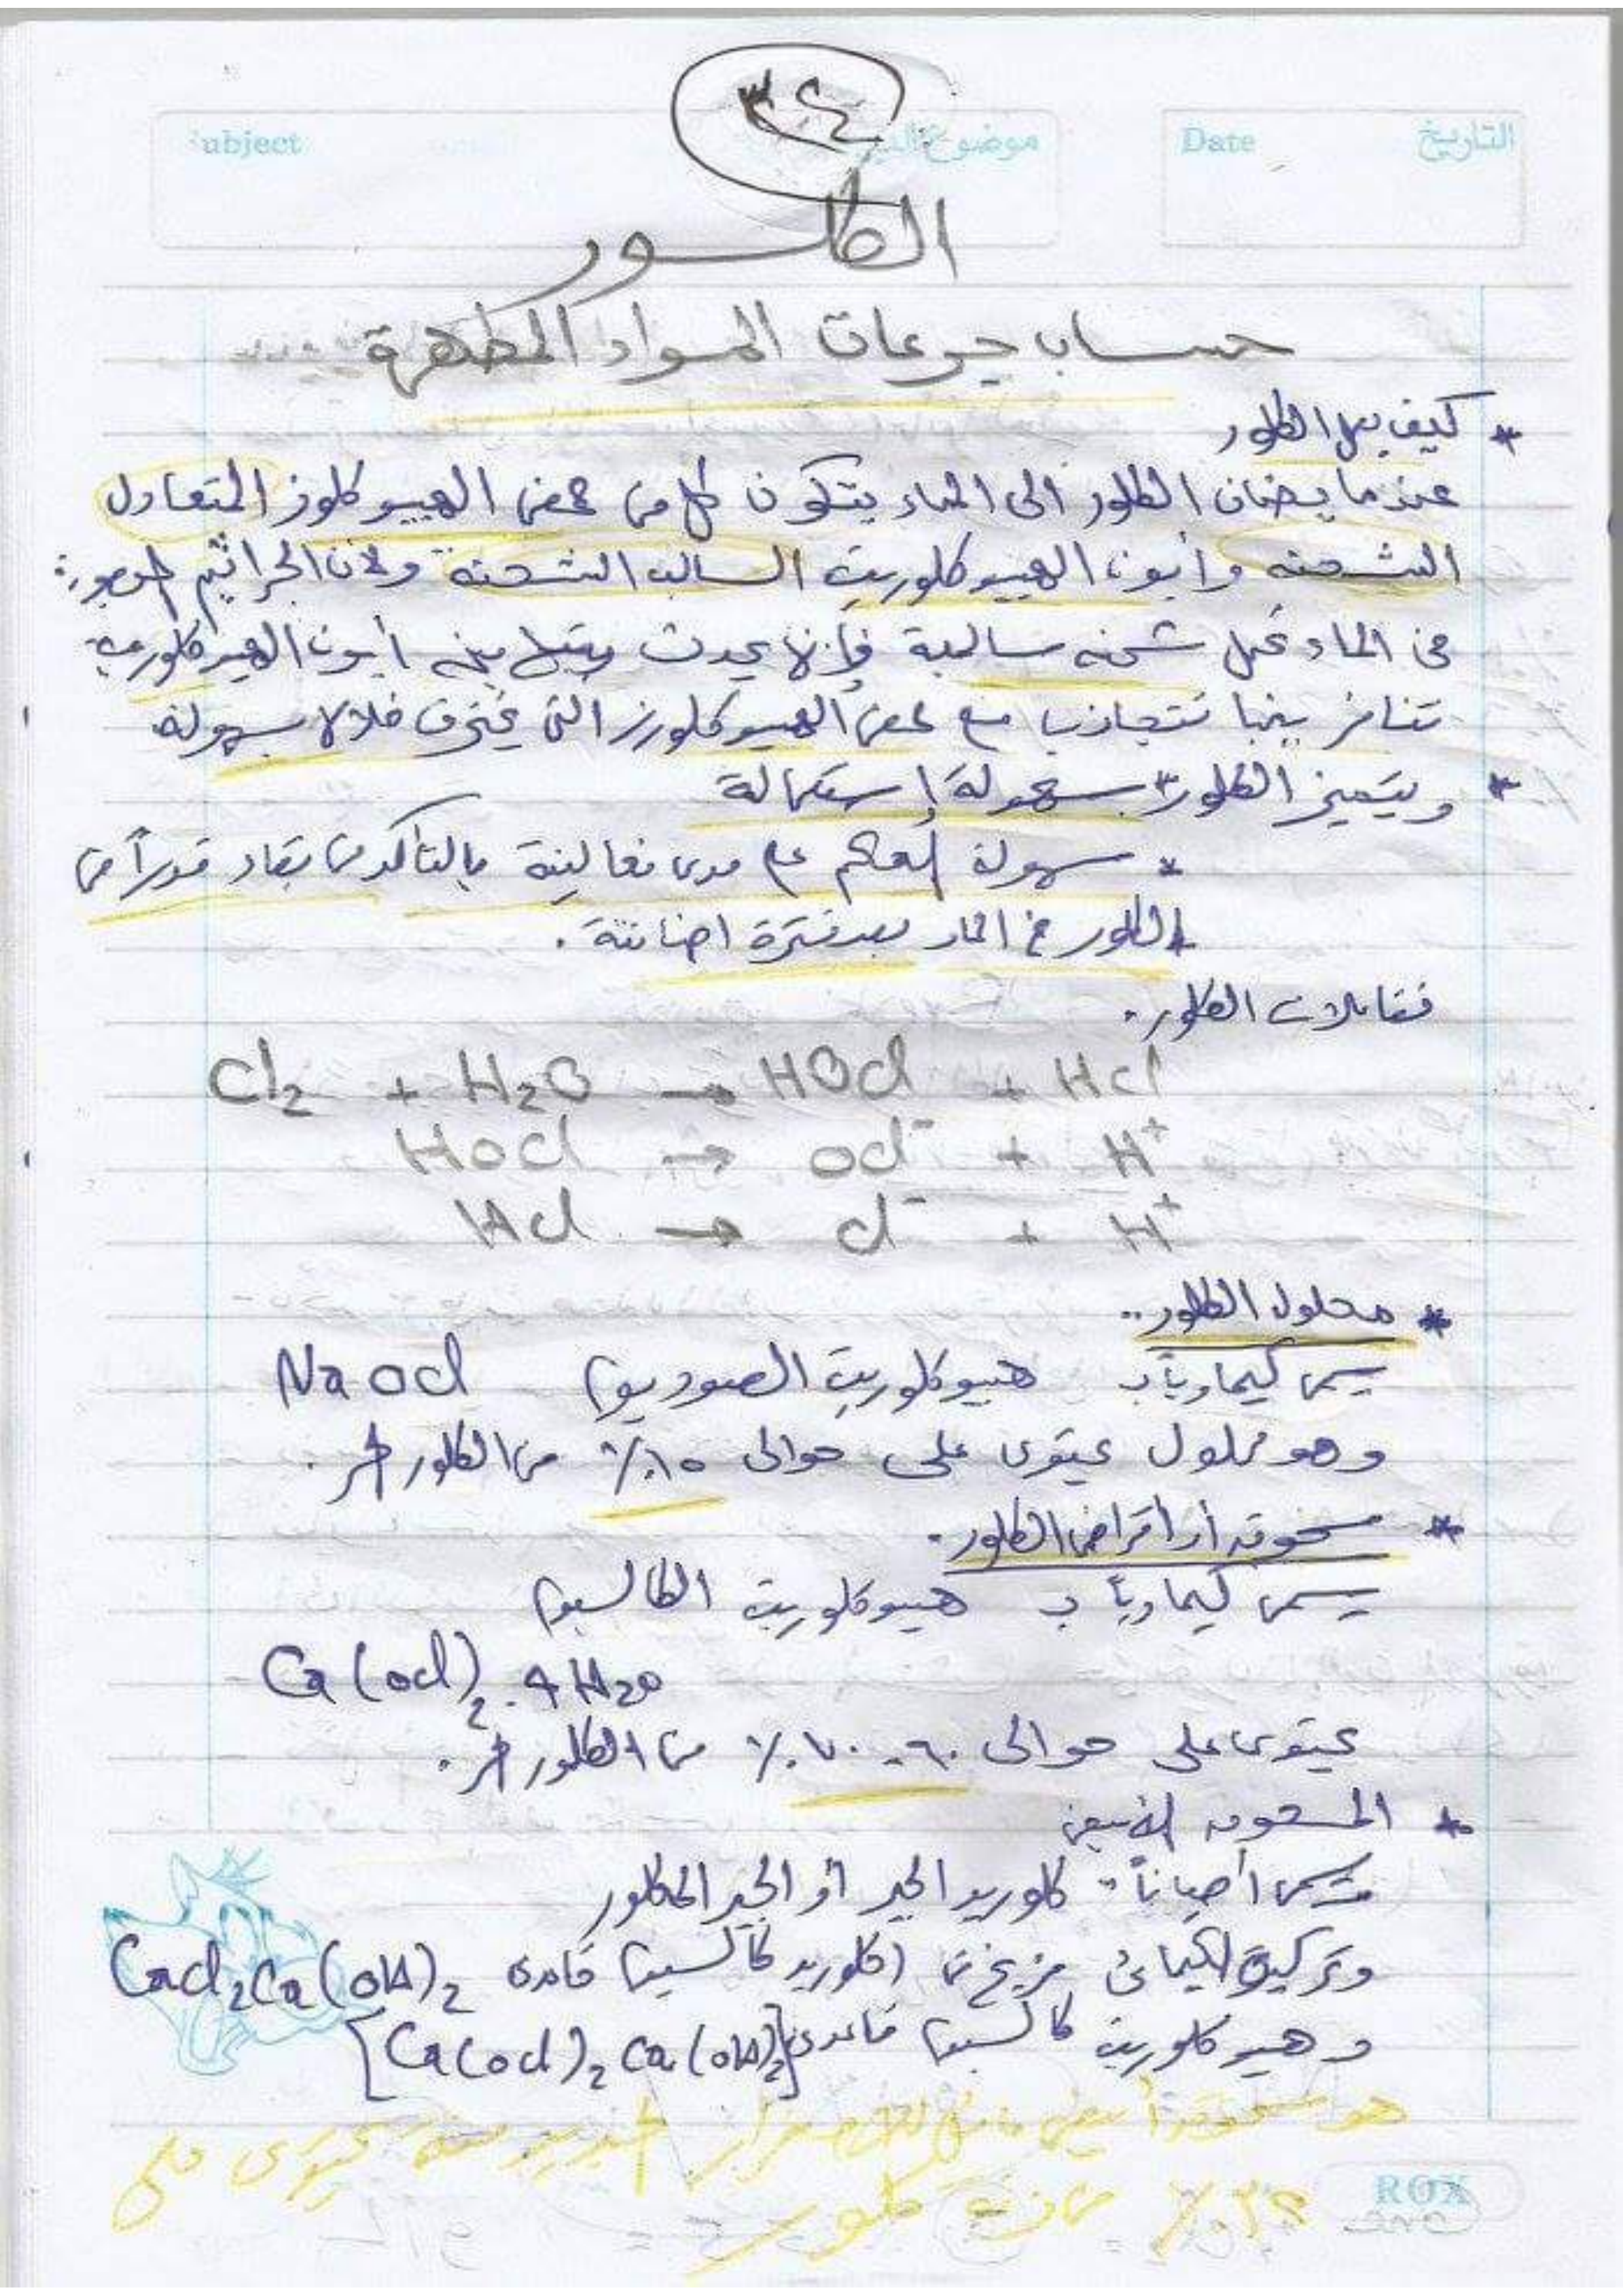 ٣٤
Subject
موضوع الدرس
Date
التاريخ
الكلور
حساب جرعات المواد المطهرة
* كيف يعمل الكلور
عندما يضاف الكلور الى الماء يتكون كل من حمض الهيبوكلوز المتعادل
الشحنه وأيون الهيبوكلوريت السالب الشحنه ولأن الجراثيم الموجودة
فى الماء تحمل شحنه سالبة فإنه يحدث بينها وبين أيون الهيبوكلوريت
تنافر بينما تتجاذب مع حمض الهيبوكلورز التى يخترق خلالا بسهولة
* ويتميز الكلور بسهولة إستعمالة
* سهولة الحكم على مدى فعاليتة بالتأكد من بقاء قدراً من
الكلور فى الماء بعد فترة اضافتة .
تفاعلات الكلور .
Cl2 + H2O → HOCl + HCl
HOCl → OCl⁻ + H⁺
HCl → Cl⁻ + H⁺
* محلول الكلور ..
يسمى كيماوياً بـ هيبوكلوريت الصوديوم NaOCl
وهو محلول يحتوى على حوالى ١٥٪ من الكلور الحر .
* مسحوق أو أقراص الكلور .
يسمى كيماوياً بـ هيبوكلوريت الكالسيوم
Ca(OCl)2 . 4H2O
يحتوى على حوالى ٦٠ - ٧٠٪ من الكلور الحر .
* المسحوق الأبيض
يسمى أحياناً كلوريد الجير أو الجير المكلور
وتركيبة الكيمائى مزيج من (كلوريد كالسيوم قاعدى CaCl2Ca(OH)2
وهيبوكلوريت كالسيوم قاعدى [Ca(OCl)2 Ca(OH)2]
هو مسحوق أبيض مائل للاصفرار يحتوى على
٪ كلور
ROX